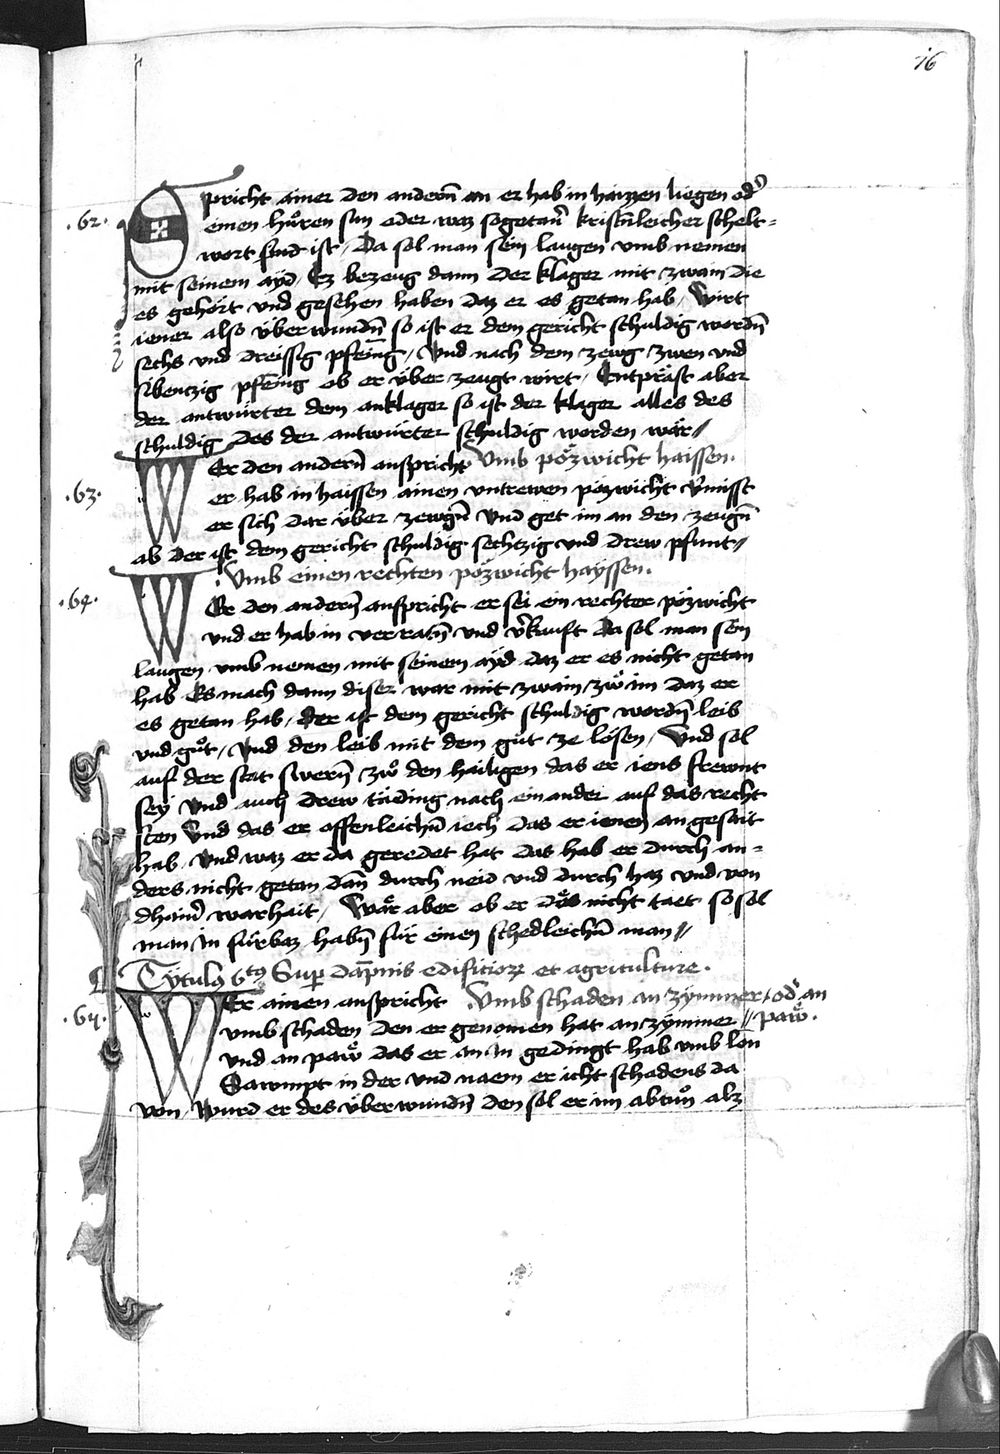 16
.62. Spricht ainer den anderñ an er hab in haizzen liegen od̄
einen hůren sun oder waz sogetañ kristn̄leicher schelt=
wort sind ist / Da sol man sein laugen vmb nemen
mit seinem ayd / Ez bezeug dann der klager mit zwain die
es gehört vnd gesehen haben daz er es getan hab / Wirt
iener also überwundn̄ so ist er dem gericht schuldig wordn̄
sechs vnd dreissig pfēing / Vnd nach dem zewg zwen vnd
sibenczig pfēing ob er über zeugt wirt / Entpräst aber
der antwürter dem anklager so ist der klager alles des
schuldig Des der antwürter schuldig worden wär //
Vmb pözwicht haissen.
.63. Wer den anderñ anspricht
er hab in haissen ainen vntrewen pözwicht v̄misst
er sich dar über zewgn̄ Vnd get im an den zeugn̄
ab Der ist dem gericht schuldig sechtzig vnd drew pfunt //
Vmb einen rechten pözwicht hayssen.
.64. Wer den anderñ anspricht er sei ein rechter pözwicht
vnd er hab in verratn̄ vnd v̄kauft Da sol man sein
laugen vmb nemen mit seinem ayd daz er es nicht getan
hab Es mach dann diser war mit zwain zů im Daz er
es getan hab / der ist dem gericht schuldig wordn̄ leib
vnd gůt / Vnd den leib mit dem gůt ze lösen / Vnd sol
auf der stat swern̄ zů den hailigen das er iens frewnt
sey Vnd auch drew täding nach ein ander auf das recht
sten Vnd das er offenleichn̄ iech Das er ienen an gesait
hab / Vnd waz er da geredet hat Das hab er durch an=
ders nicht getan dañ durch neid vnd durch haz vnd von
dhaiñ warhait / Wär aber ob er dös nicht taet so sol
man in fürbaz habn̄ für einen schedleichn̄ man //
Tytulus 6tus Sup̄ dāpnis edificiorꝝ et agriculture.
.65. Wer ainen anspricht Vmb schaden an zymmer / od̄ an
vmb schaden Den er genomen hat an zymmer // paẘ.
vnd an paẘ das er an in gedingt hab vmb lon
Sawmpt in der vnd naem er icht schadens da
von / Wurd er des überwundn̄ Den sol er im abtůn alz